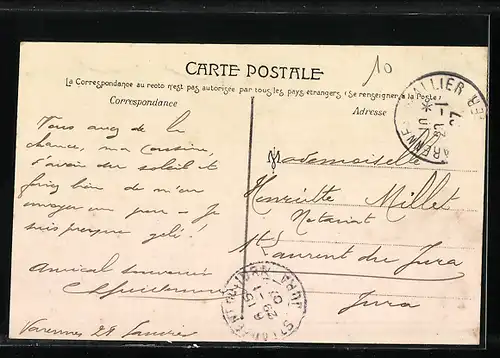 CARTE POSTALE
La Correspondance au recto n'est pas autorisée par tous les pays étrangers (Se renseigner à la Poste)
Correspondance
Adresse
10
Vous avez de la
chance, ma cousine,
d'avoir du soleil et
bien de m'en
envoyer un peu - Je
suis presque gelé !
Amical souvenir
Varennes 28 Janvier
Mademoiselle
Henriette Millet
Notariat
St Laurent du Jura
Jura
ALLIER
JURA